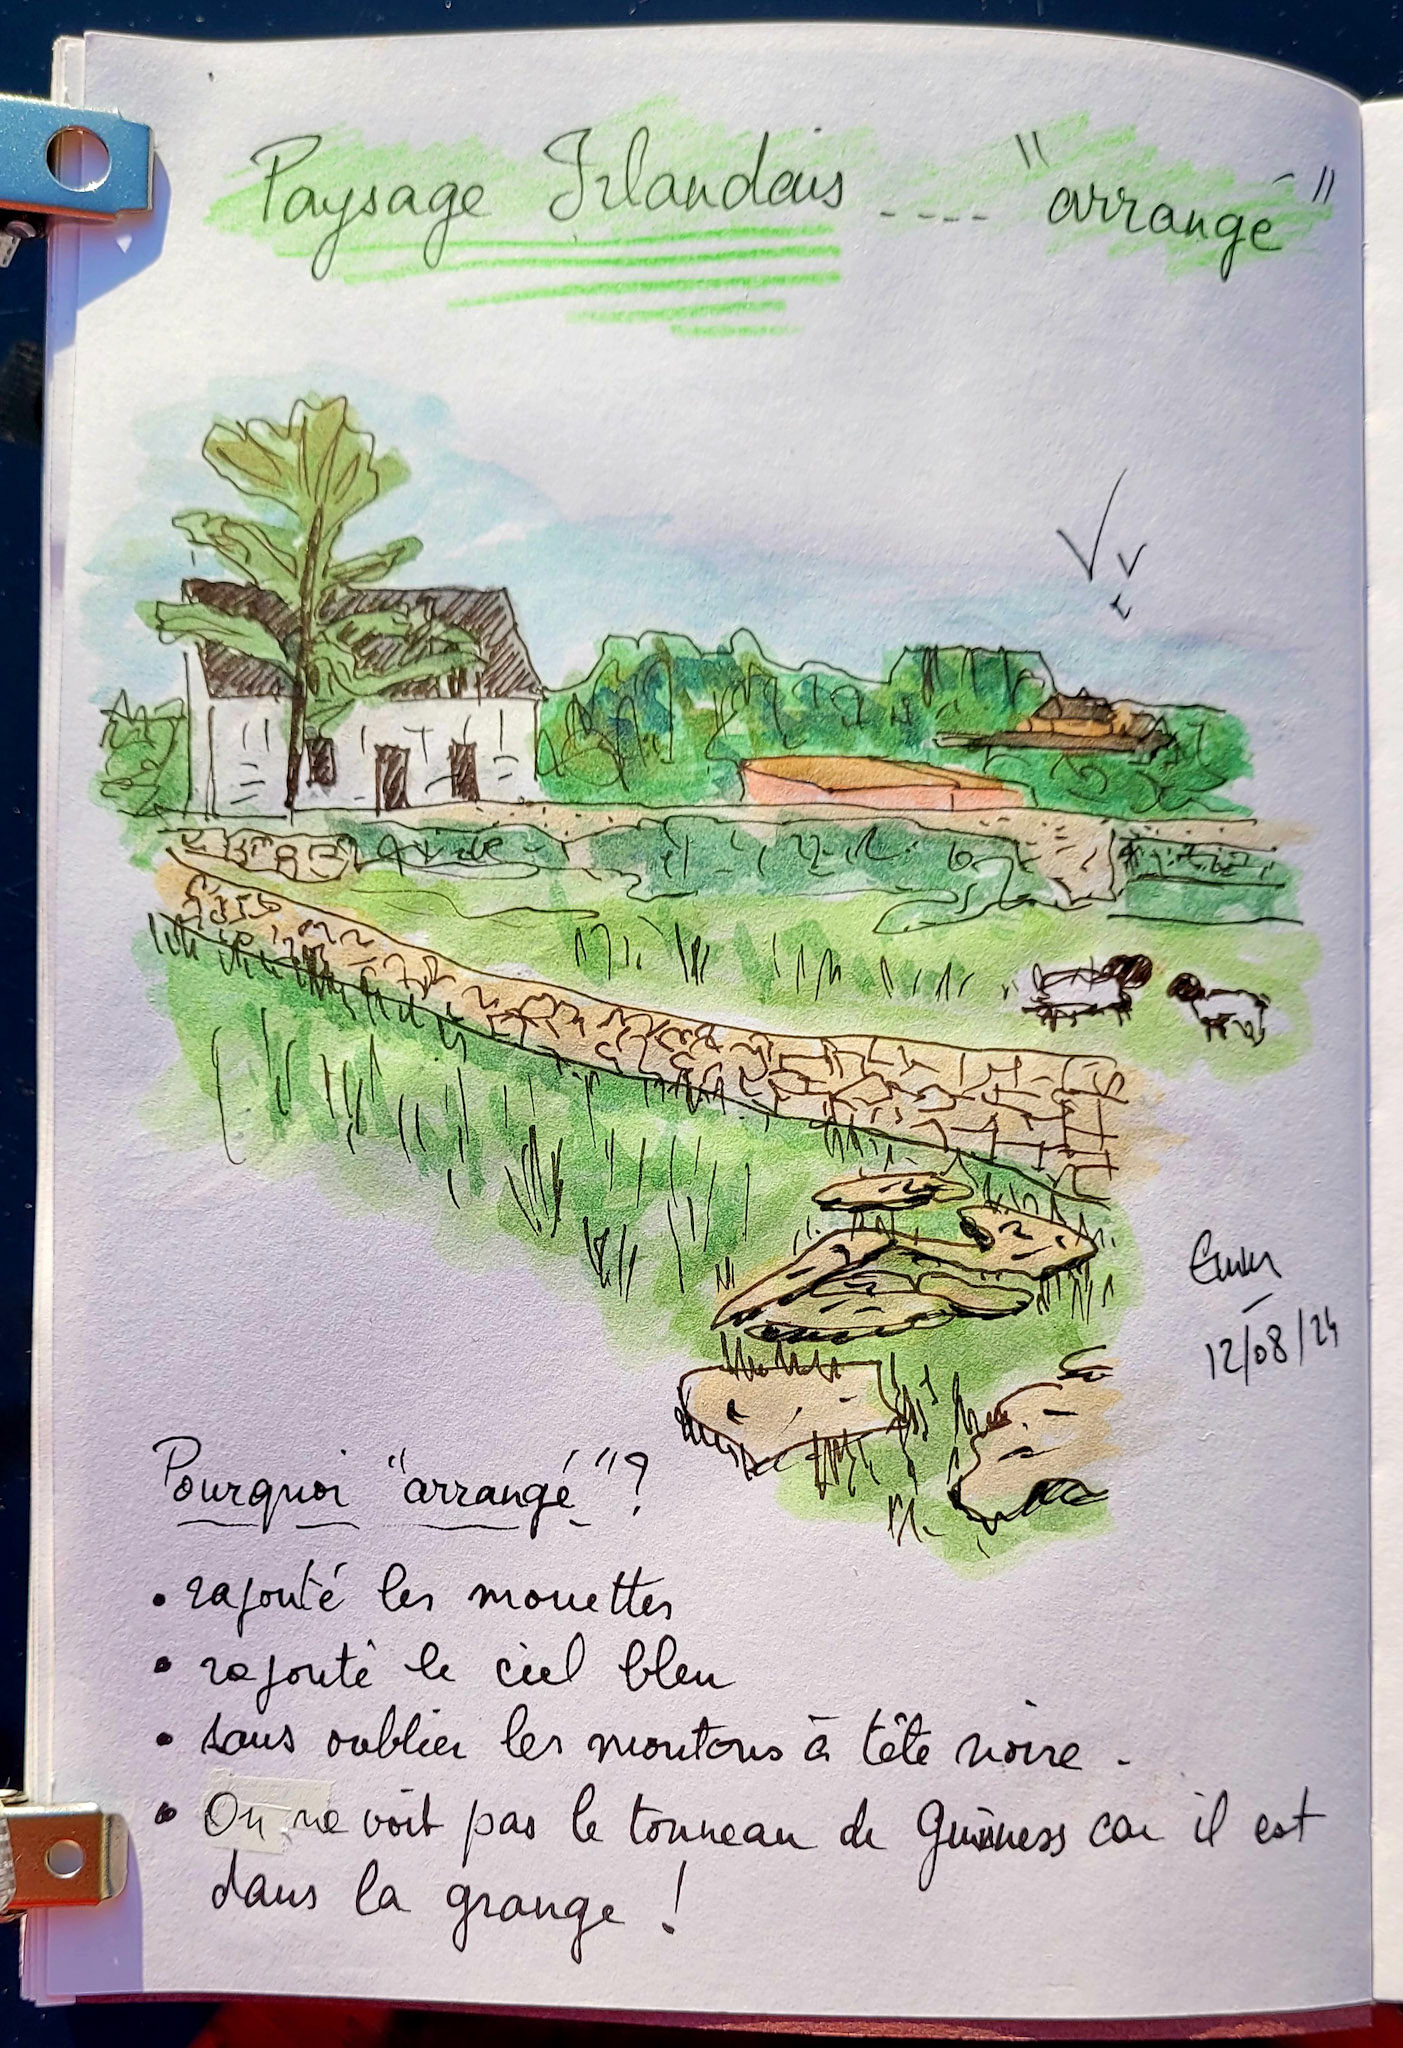 Paysage Irlandais .... "arrangé"
12/08/24
Pourquoi "arrangé"?
• rajouté les mouettes
• rajouté le ciel bleu
• sans oublier les moutons à tête noire.
• On ne voit pas le tonneau de Guiness car il est
dans la grange !